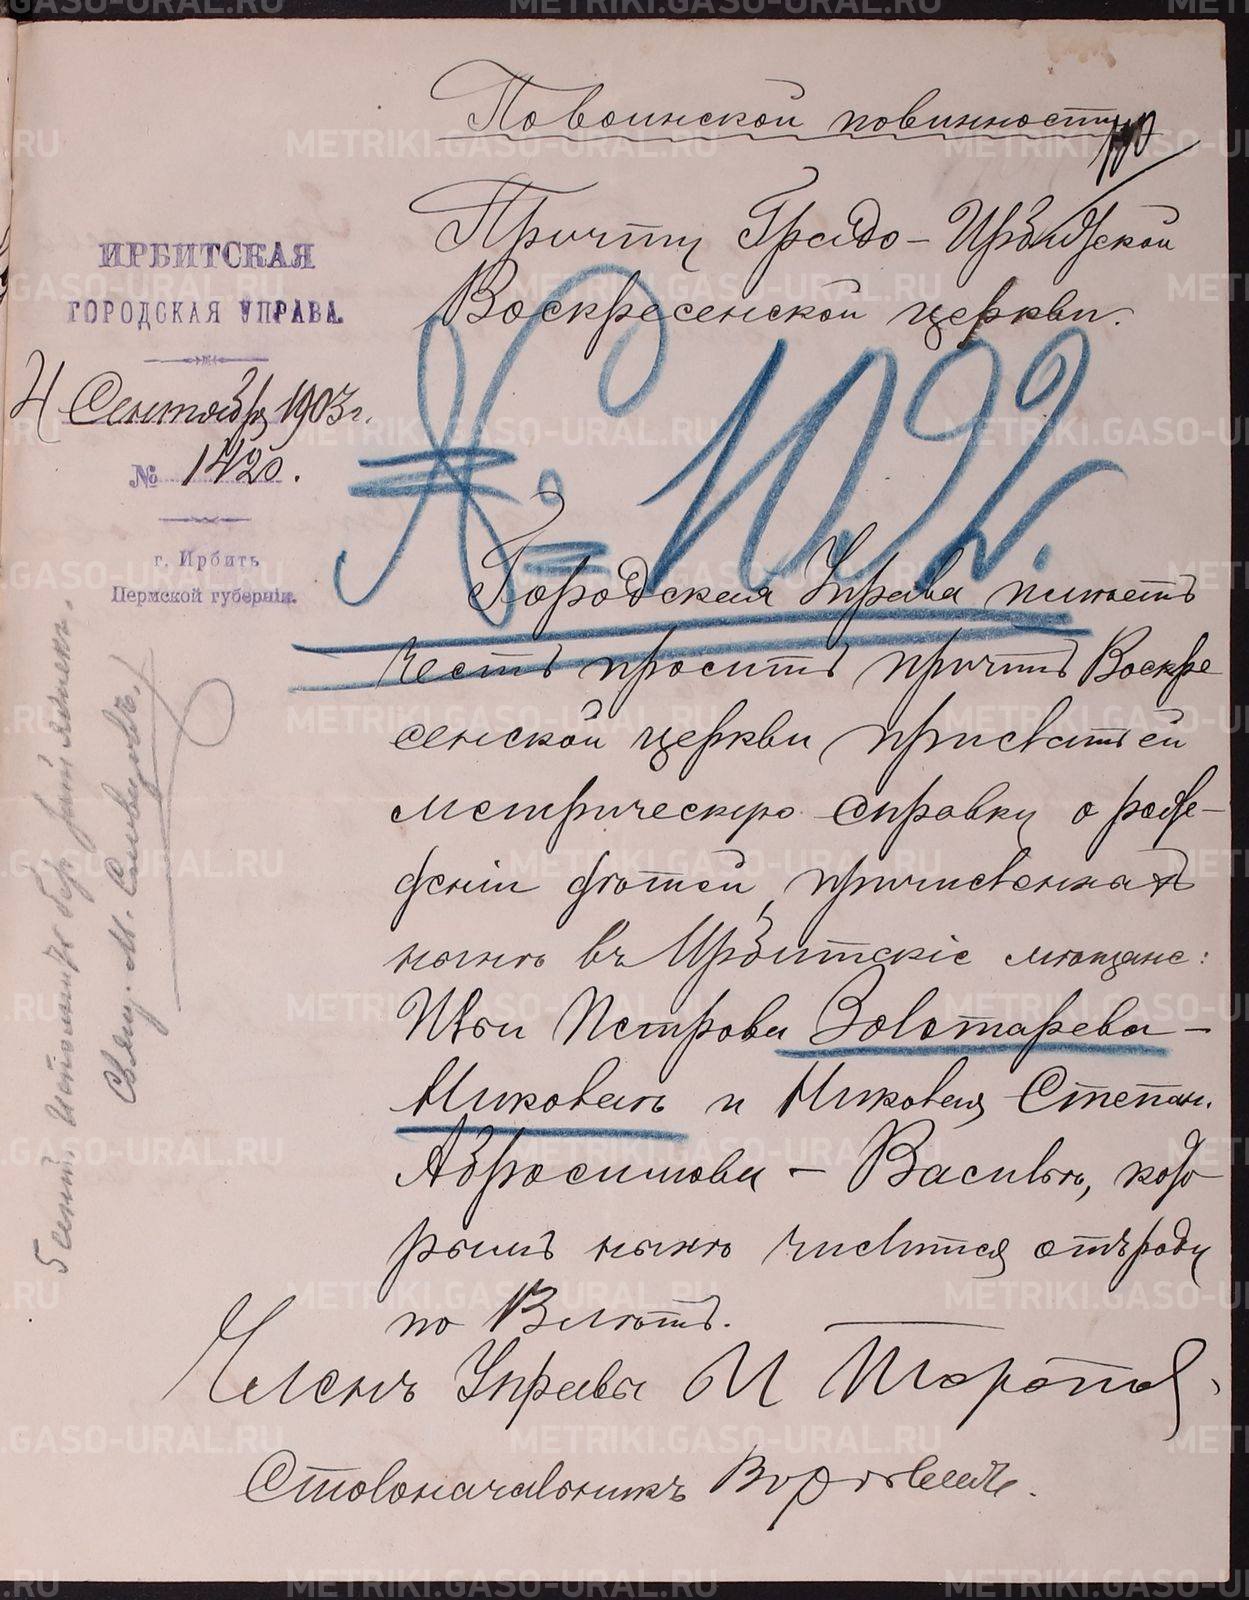 По воинской повинности
Причту Градо-Ирбитской
Воскресенской церкви.
ИРБИТСКАЯ
ГОРОДСКАЯ УПРАВА.
4 Сентября 1903 г.
№ 1420.
г. Ирбить
Пермской губернiи.
№ 1092.
Городская Управа имѣетъ
честь просить причтъ Воскре
сенской церкви прислать ей
метрическую справку о рож-
деніи дѣтей, причисленныхъ
нынѣ въ Ирбитскіе мѣщане:
Ильи Петрова Золотарева –
Михаилъ и Михаила Степан.
Абросимова – Василій, кото
рымъ нынѣ числится отъ роду
по 13 лѣтъ.
Членъ Управы И
Столоначальникъ
5 сент.
Свящ. М.
METRIKI.GASO-URAL.RU